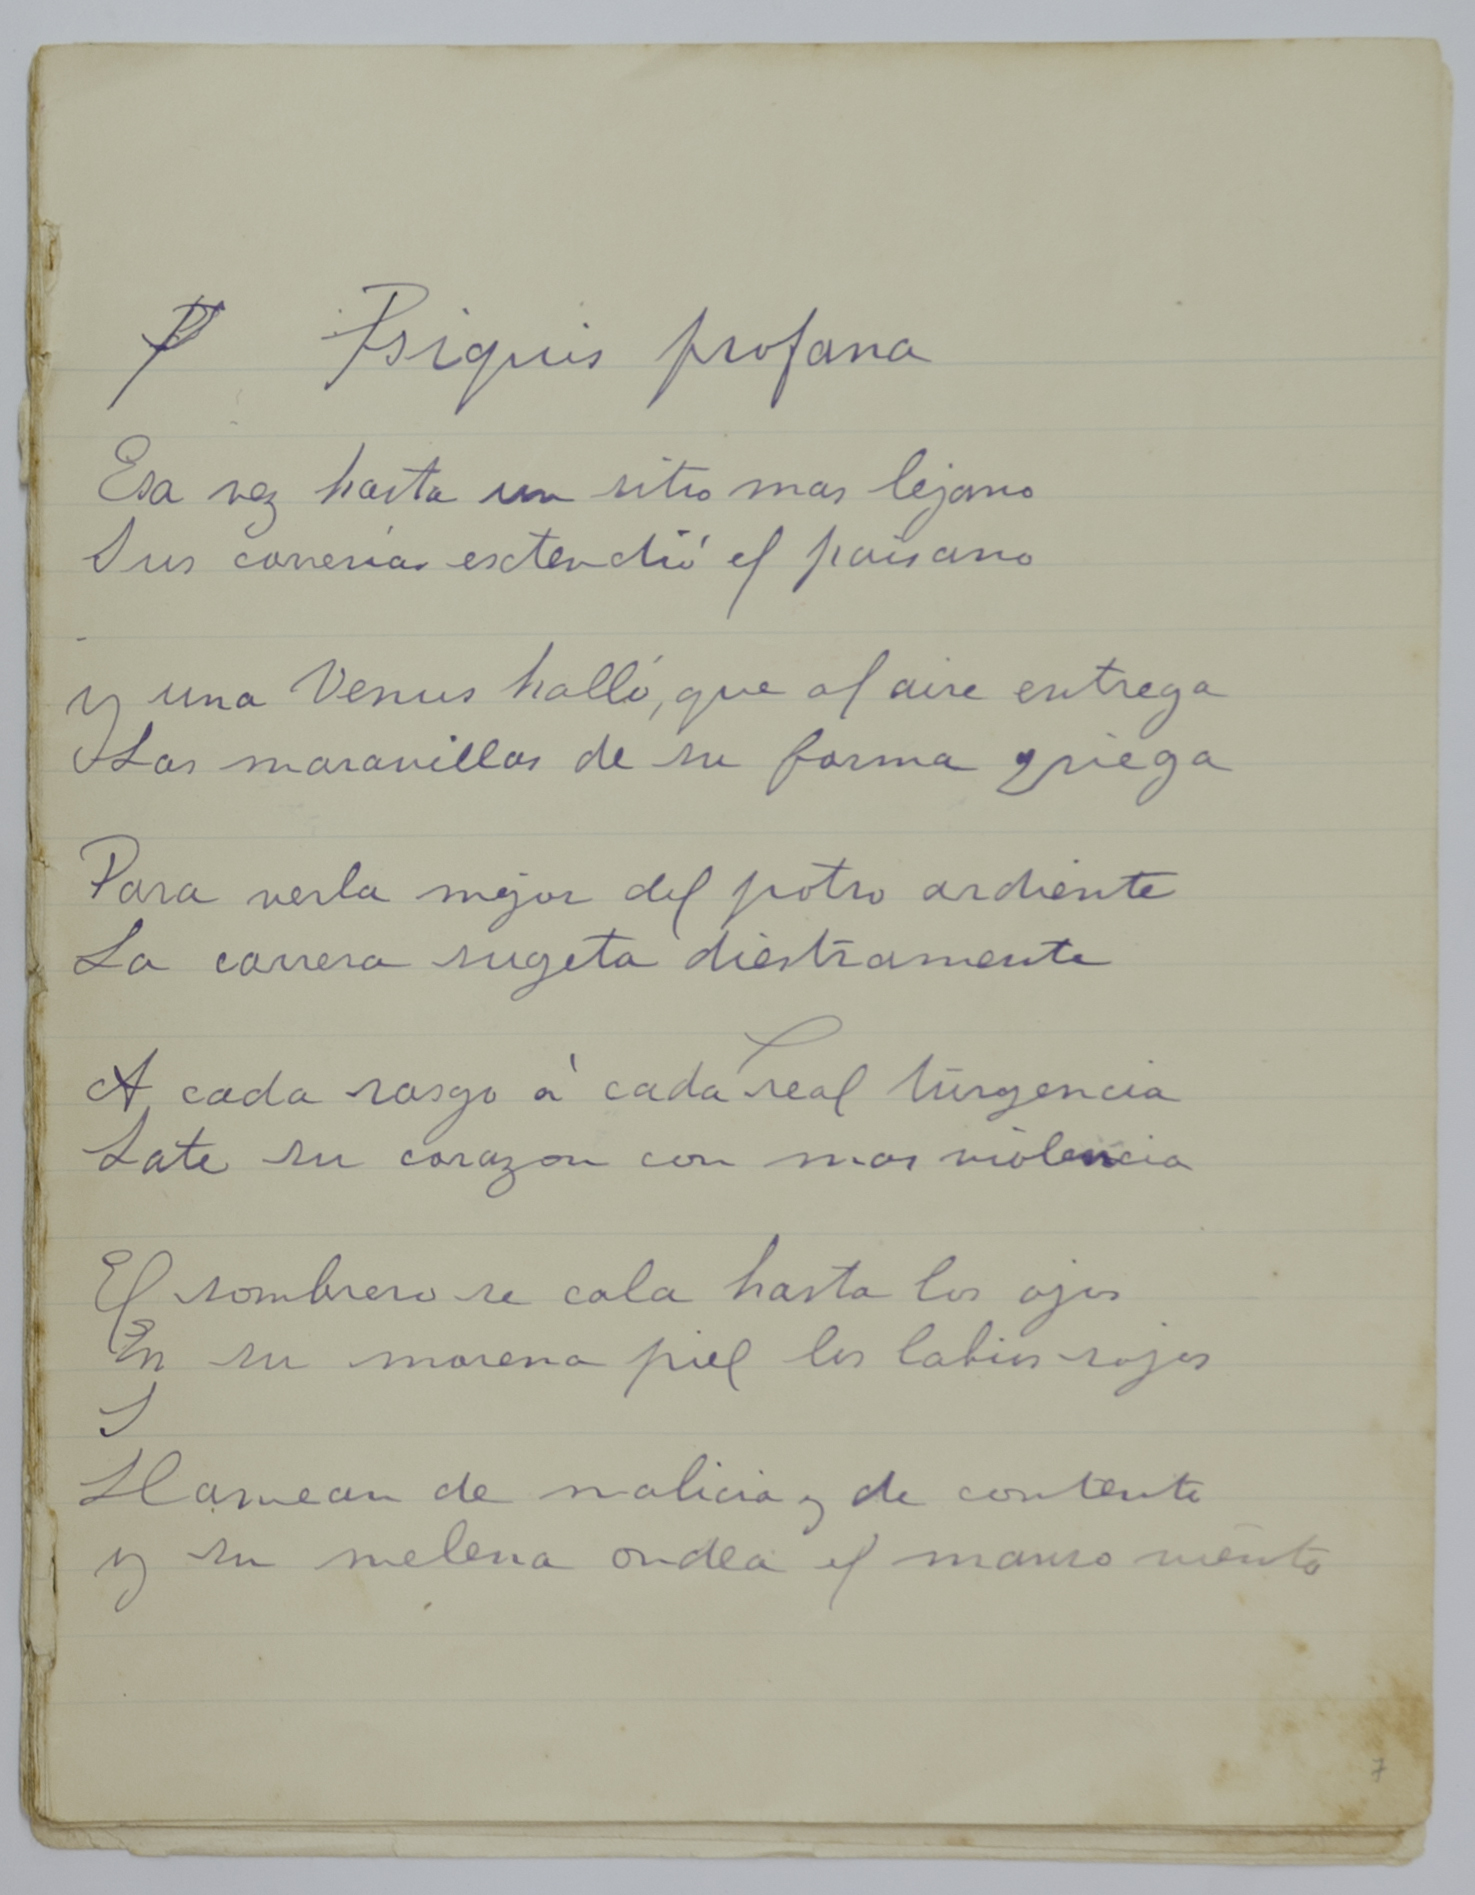 P Psiquis profana
Esa vez hasta un sitio mas lejano
Sus correrias extendió el paisano
y una Venus halló, que al aire entrega
Las maravillas de su forma griega
Para verla mejor del potro ardiente
La carrera sugeta diestramente
A cada rasgo á cada real turgencia
Late su corazon con mas violencia
El sombrero se cala hasta los ojos
En su morena piel los labios rojos
S
Llamean de malicia y de contento
y su melena ondea el manso viento
7